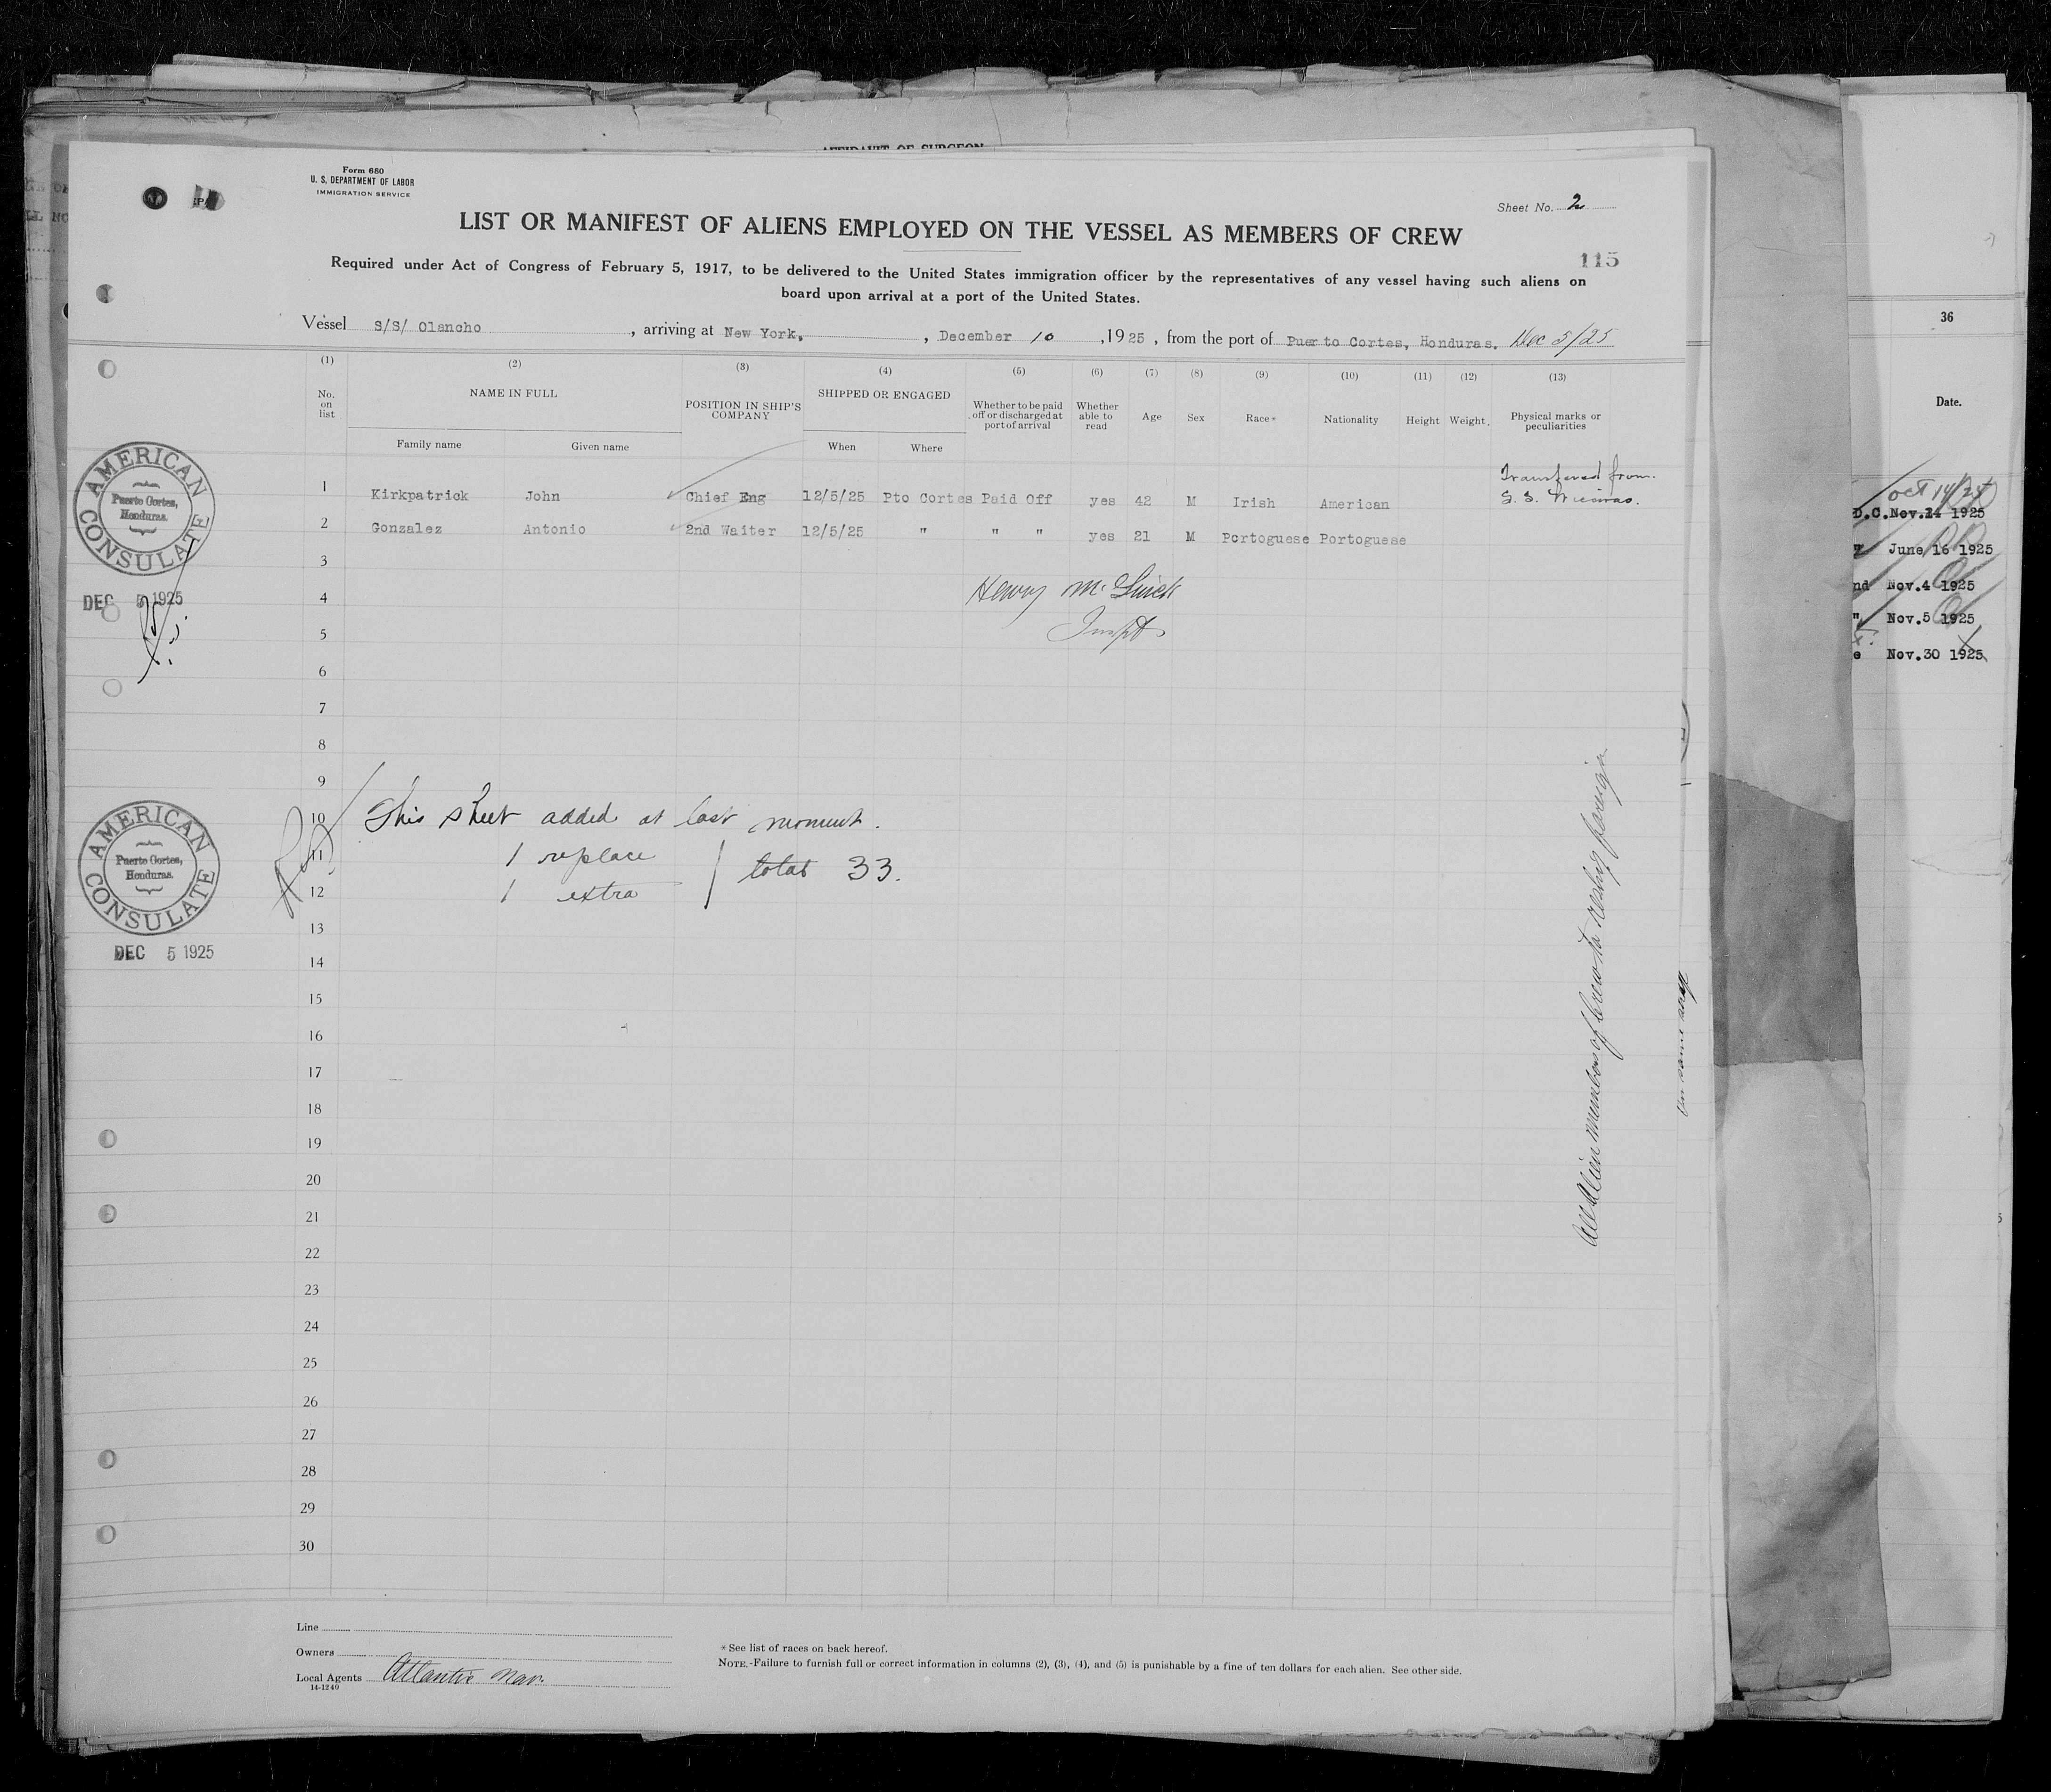 AFFIDAVIT OF SURGEON
Form 680
U. S. DEPARTMENT OF LABOR
IMMIGRATION SERVICE
Sheet No. 2
LIST OR MANIFEST OF ALIENS EMPLOYED ON THE VESSEL AS MEMBERS OF CREW
115
Required under Act of Congress of February 5, 1917, to be delivered to the United States immigration officer by the representatives of any vessel having such aliens on
board upon arrival at a port of the United States.
Vessel S/S/ Olancho, arriving at New York, , December 10, 1925, from the port of Puerto Cortes, Honduras. Dec 5/25
(1) (2) (3) (4) (5) (6) (7) (8) (9) (10) (11) (12) (13)
No. on list NAME IN FULL POSITION IN SHIP'S COMPANY SHIPPED OR ENGAGED Whether to be paid off or discharged at port of arrival Whether able to read Age Sex Race* Nationality Height Weight Physical marks or peculiarities
Family name Given name When Where
Transfered from
1 Kirkpatrick John Chief Eng 12/5/25 Pto Cortes Paid Off yes 42 M Irish American S. S.
2 Gonzalez Antonio 2nd Waiter 12/5/25 " " " yes 21 M Portoguese Portoguese
3
4 Henry
5 Inspt
6
7
8
9
10 This sheet added at last moment.
11 1 replace
total 33.
12 1 extra
13
14
15
16
17
18
19
20
21
22
23
24
25
26
27
28
29
30
AMERICAN CONSULATE
Puerto Cortes,
Honduras.
DEC 5 1925
AMERICAN CONSULATE
Puerto Cortes,
Honduras.
DEC 5 1925
All Alien members of Crew to reship foreign
Line
Owners
Local Agents Atlantic Nav.
14-1240
*See list of races on back hereof.
NOTE.-Failure to furnish full or correct information in columns (2), (3), (4), and (5) is punishable by a fine of ten dollars for each alien. See other side.
36
Date.
D.C. Nov.14 1925
" June 16 1925
nd Nov.4 1925
" Nov.5 1925
e Nov.30 1925